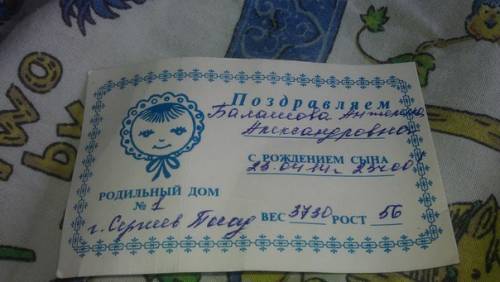 Поздравляем
Балашова
Александровна
С РОЖДЕНИЕМ СЫНА
23.04.14г. 23 00 ч
РОДИЛЬНЫЙ ДОМ
№ 1
г. Сергиев Посад
ВЕС 3730 РОСТ 56